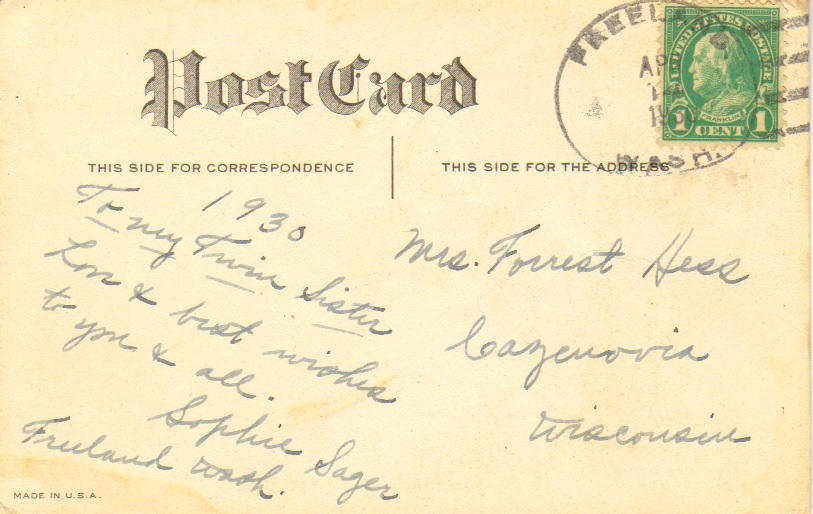 Post Card
THIS SIDE FOR CORRESPONDENCE
THIS SIDE FOR THE ADDRESS
FREELAND
APR
14
1930
WASH.
UNITED STATES POSTAGE
FRANKLIN
1 CENT 1
1930
To my Twin Sister
Love & best wishes
to you & all.
Sophie Sager
Freeland Wash.
Mrs. Forrest Hess
Cazenovia
Wisconsin
MADE IN U.S.A.